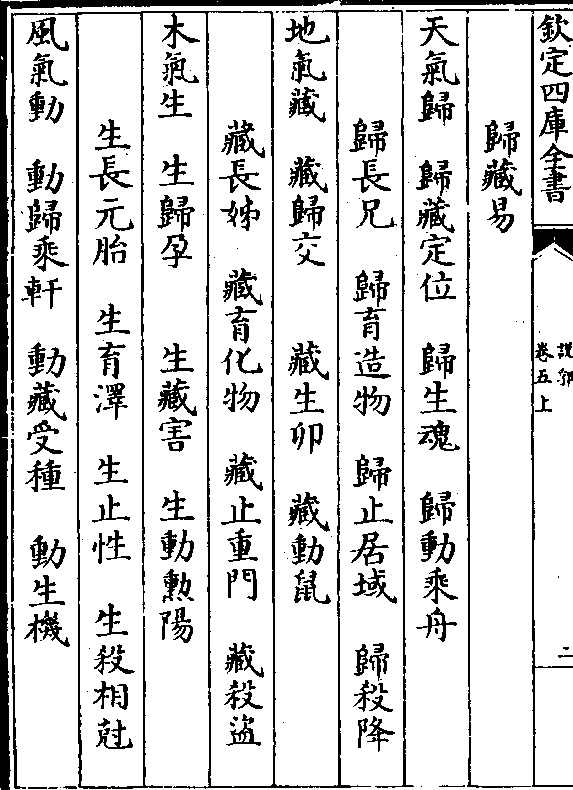 欽定四庫全書
說郛
卷五上
二
歸藏易
天氣歸 歸藏定位 歸生魂 歸動乘舟
歸長兄 歸育造物 歸止居域 歸殺降
地氣藏 藏歸交 藏生卯 藏動鼠
藏長姊 藏育化物 藏止重門 藏殺盜
木氣生 生歸孕 生藏害 生動勲陽
生長元胎 生育澤 生止性 生殺相尅
風氣動 動歸乘軒 動藏受種 動生機